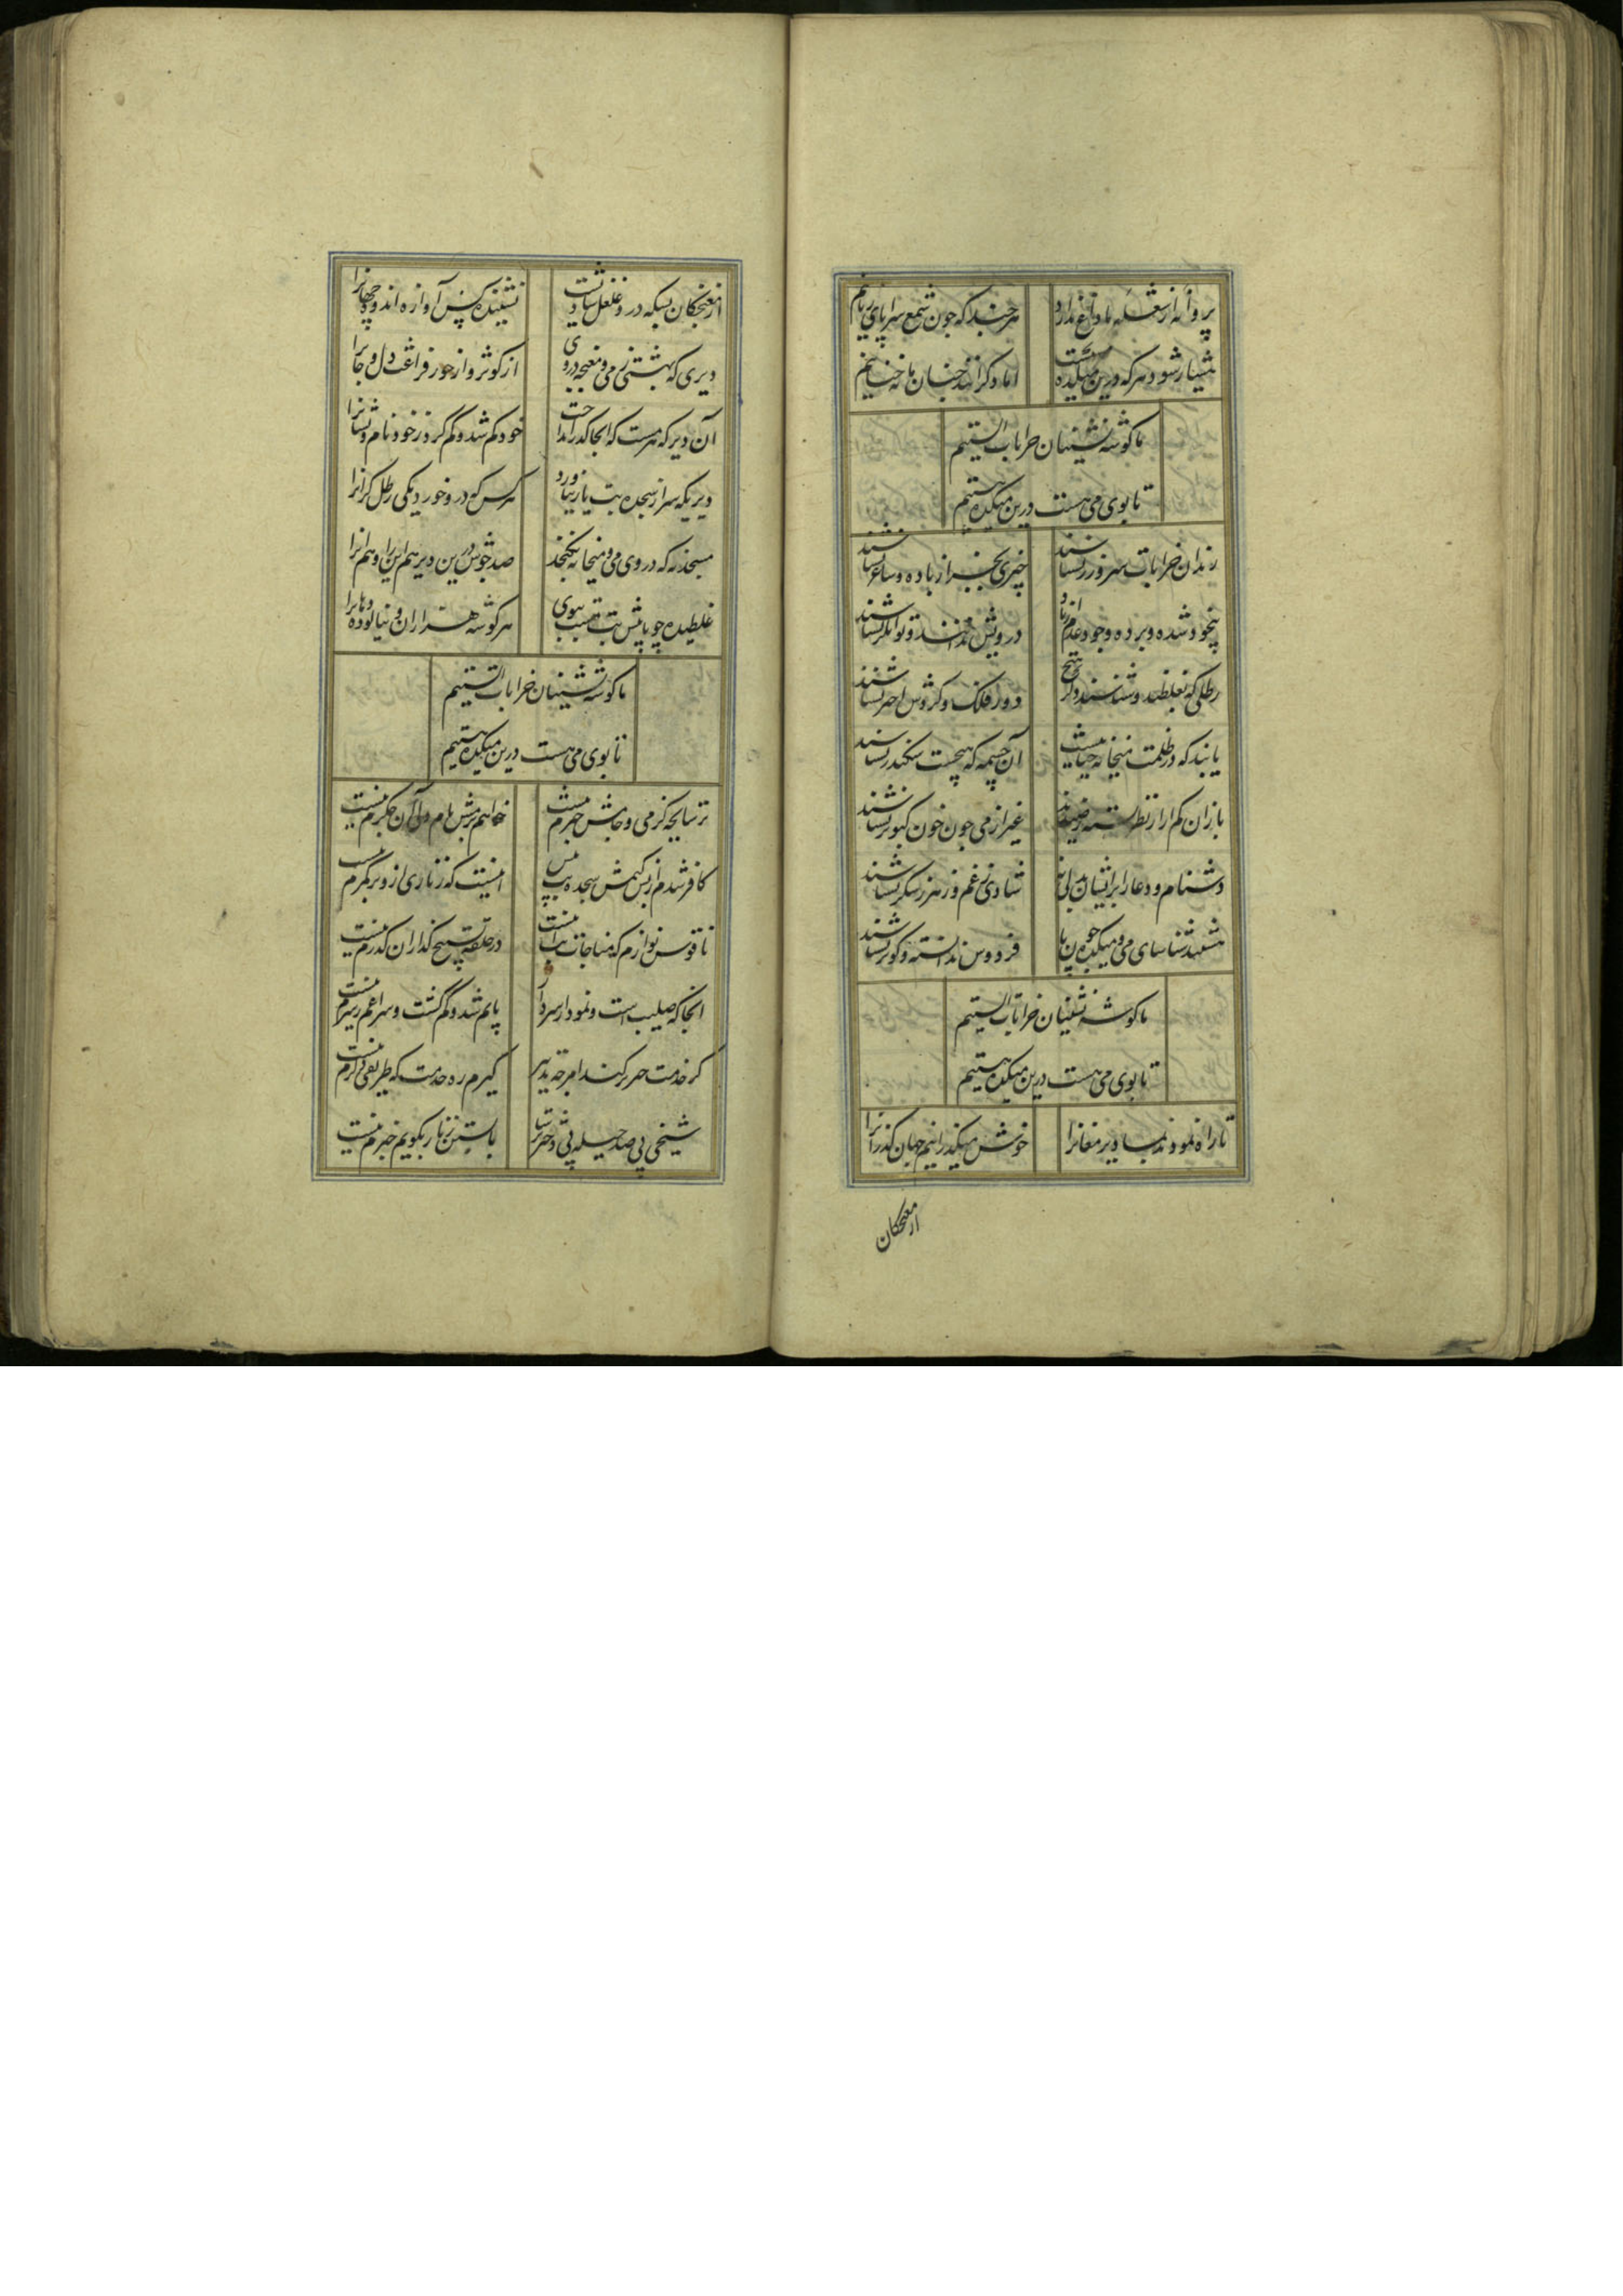 پروانه از شعله ما داغ ندارد هرچند که چون شمع سراپای زبانیم
هشیار شود هرکه درین میکده مست اما دگرانند چنان ما نه چنانیم
ما گوشه نشینان خرابات الستیم
تا بوی می هست درین میکده مستیم
رندان خرابات سر و زر نشناسند چیزی بجز از باده و ساغر نشناسند
بیخود شده و برده وجود و عدم از یاد درویش ندانند و توانگر نشناسند
رطلی که بغلطند و شناسند دگر هیچ دور فلک و گردش اختر نشناسند
یابند که در ظلمت میخانه حیاتیست آن چشمه که میجست سکندر نشناسند
بازان کم آزار نظر بسته ز صیدند غیر از می چون خون کبوتر نشناسند
دشنام و دعا را بر ایشان بدلی نه شادی ز غم و زهر ز شکر نشناسند
هستند شناسای می و میکده چون ما فردوس ندانسته و کوثر نشناسند
ما گوشه نشینان خرابات الستیم
تا بوی می هست درین میکده مستیم
تا راه نمودند بما دیر مغانرا خوش میگذرانیم جهان گذرانرا
از مغبچگان
از مغبچگان بسکه در او غلغل شادیست نشنیده کس آوازه اندوه جهانرا
دیری که بهشتی ز می و مغبچه در وی از کوثر و از حور فراغت دل و جانرا
آن دیر که هر مست که آنجا گذر انداخت خود گم شد و گم کرد ز خود نام و نشانرا
دیریکه سر از سجده بت باز نیاورد هرکس که درو خورد یکی رطل گرانرا
مسجد نه که در وی می و میخانه نگنجد صد جوش درین دیر هم اینرا و هم آنرا
غلطیده چو پیش بت بسبوی هر گوشه هزاران و نیالوده دهانرا
ما گوشه نشینان خرابات الستیم
تا بوی می هست درین میکده مستیم
ترسابچه کز می و جامش خبرم نیست خواهم برمش نام ولی آن جگرم نیست
کافر شدم از بس کنمش سجده اینست که زناری ازو بر کمرم نیست
ناقوس نوازم که مناجات بت اینست در حلقه تسبیح گذاران گذرم نیست
آنجا که صلیب است و نمودار سر دار پایم شد و گم گشت و سراغم ز سرم نیست
گر خدمت گیرم ره خدمت که طریق دگرم نیست
شیخی پی صد حیله پی با بستن زنار بگویم خبرم نیست